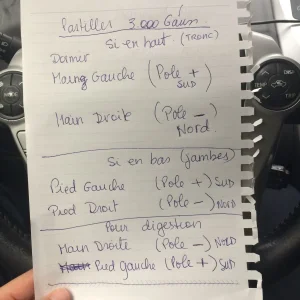 Pastilles 3.000 Gauss
Si en haut (TRONC)
Dormir
Main Gauche (Pole +)
SUD
Main Droite (Pole -)
Nord.
Si en bas (jambes)
Pied Gauche (Pole +) SUD
Pied Droit (Pole -) NORD
Pour digestion
Main Droite (Pole -) NORD
Pied gauche (Pole +) SUD